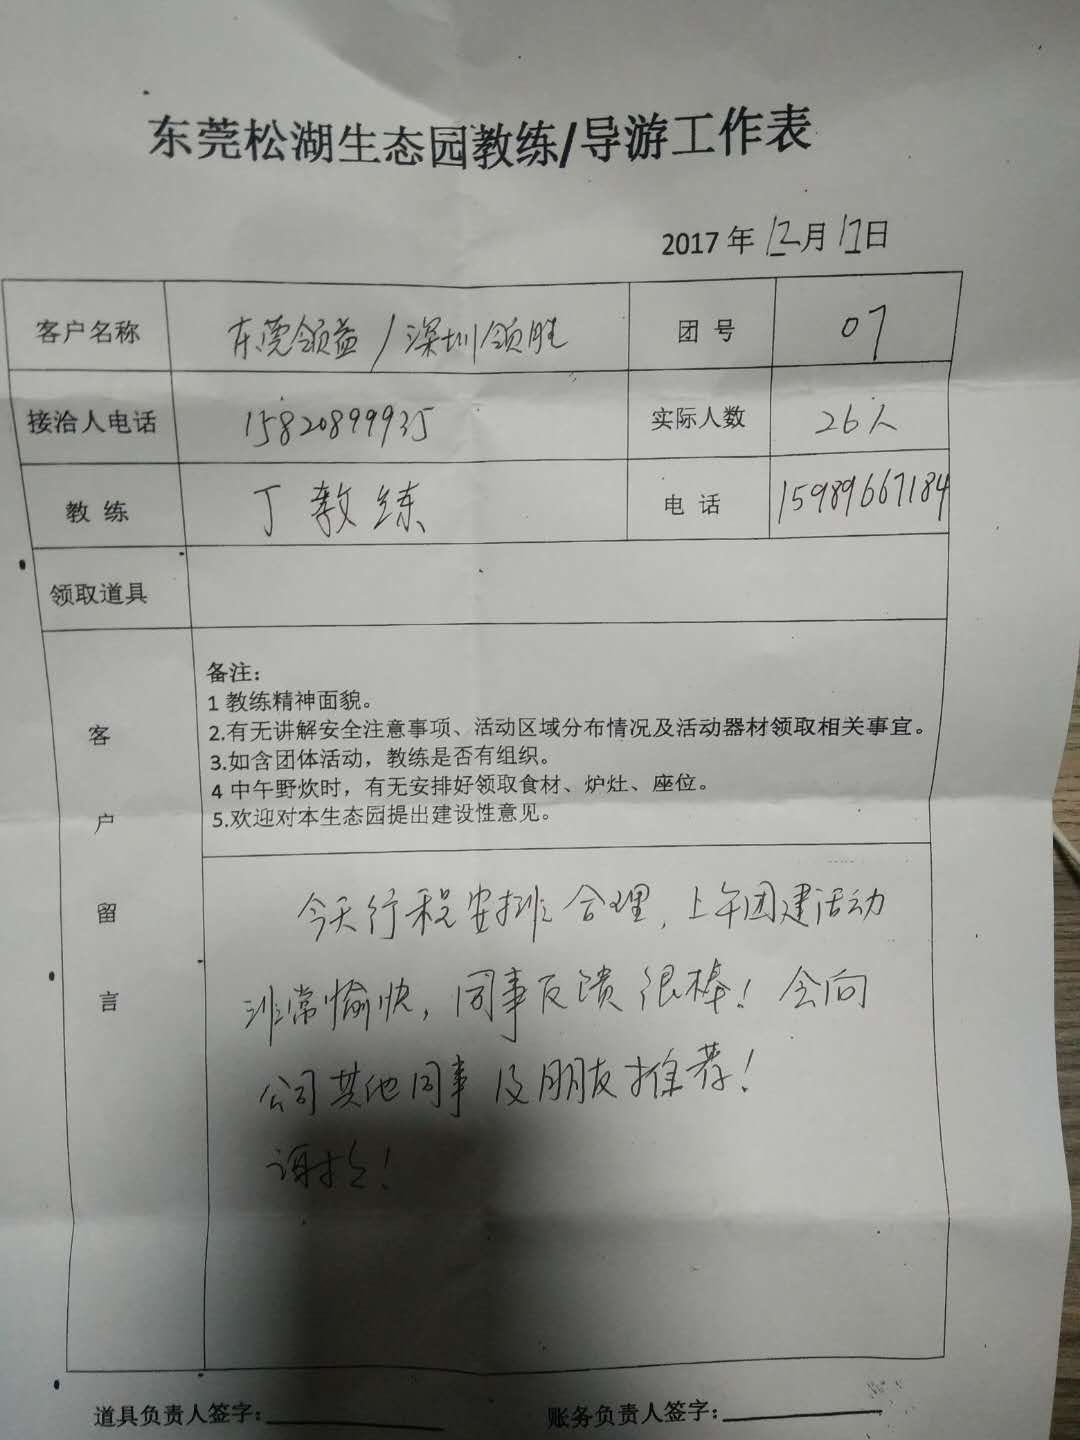 东莞松湖生态园教练/导游工作表
2017年12月17日
客户名称 东莞领益/深圳领胜 团号 07
接洽人电话 15820899935 实际人数 26人
教练 丁教练 电话 15989667184
领取道具
客户留言
备注：
1 教练精神面貌。
2.有无讲解安全注意事项、活动区域分布情况及活动器材领取相关事宜。
3.如含团体活动，教练是否有组织。
4 中午野炊时，有无安排好领取食材、炉灶、座位。
5.欢迎对本生态园提出建设性意见。
今天行程安排合理，上午团建活动
非常愉快，同事反馈很棒！会向
公司其他同事及朋友推荐！
道具负责人签字： 账务负责人签字：